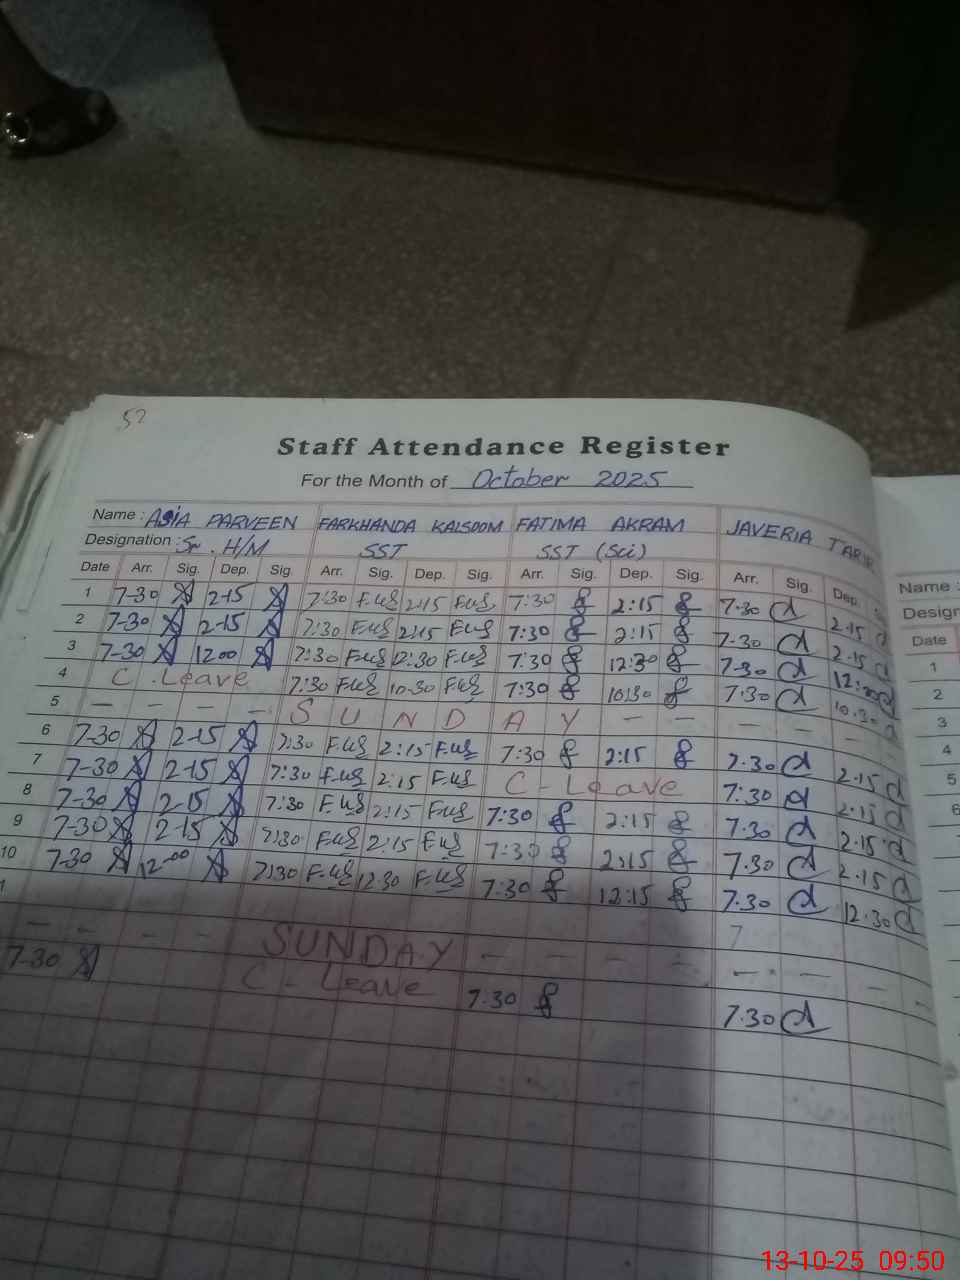 52
Staff Attendance Register
For the Month of October 2025
Name : ASIA PARVEEN FARKHANDA KALSOOM FATIMA AKRAM JAVERIA TARIQ
Designation : Sr. H/M SST SST (Sci)
Date Arr. Sig. Dep. Sig. Arr. Sig. Dep. Sig. Arr. Sig. Dep. Sig. Arr. Sig. Dep.
1 7-30 2-15 7:30 2:15 7:30 2:15 7.30 2.15
2 7-30 2-15 7:30 2:15 7:30 2:15 7.30 2.15
3 7-30 12 00 7:30 12:30 7:30 12:30 7.30 12:30
4 C. Leave 7:30 10.30 7:30 10:30 7.30 10.30
5 — — — — SUNDAY — — — — —
6 7-30 2-15 7:30 2:15 7:30 2:15 7.30 2.15
7 7-30 2-15 7:30 2:15 C - Leave 7:30 2.15
8 7-30 2-15 7:30 2:15 7:30 2:15 7.30 2.15
9 7-30 2-15 7:30 2:15 7:30 2:15 7.30 2.15
10 7-30 12-00 7:30 12:30 7:30 12:15 7.30 12.30
1 7
— — — — SUNDAY — — — — — — — —
7-30 C - Leave 7.30 7.30
Name :
Design
Date
1
2
3
4
5
6
13-10-25 09:50